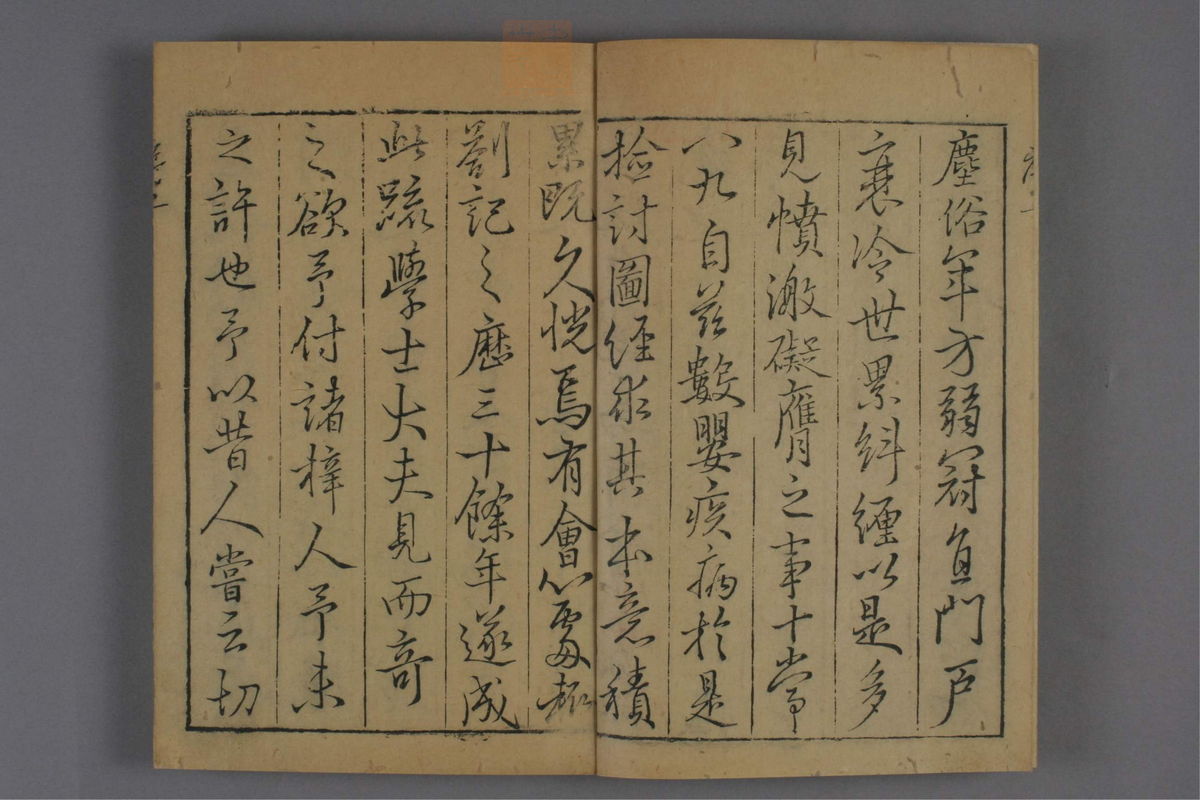 塵俗年方弱冠值門戶
衰冷世累糾纏以是多
見憤激礙膺之事十常
八九自茲數嬰疾病於是
撿討圖經求其本意積
累既久恍焉有會心處輒
劄記之歷三十餘年遂成
此疏學士大夫見而奇
之欲予付諸梓人予未
之許也予以昔人嘗云切